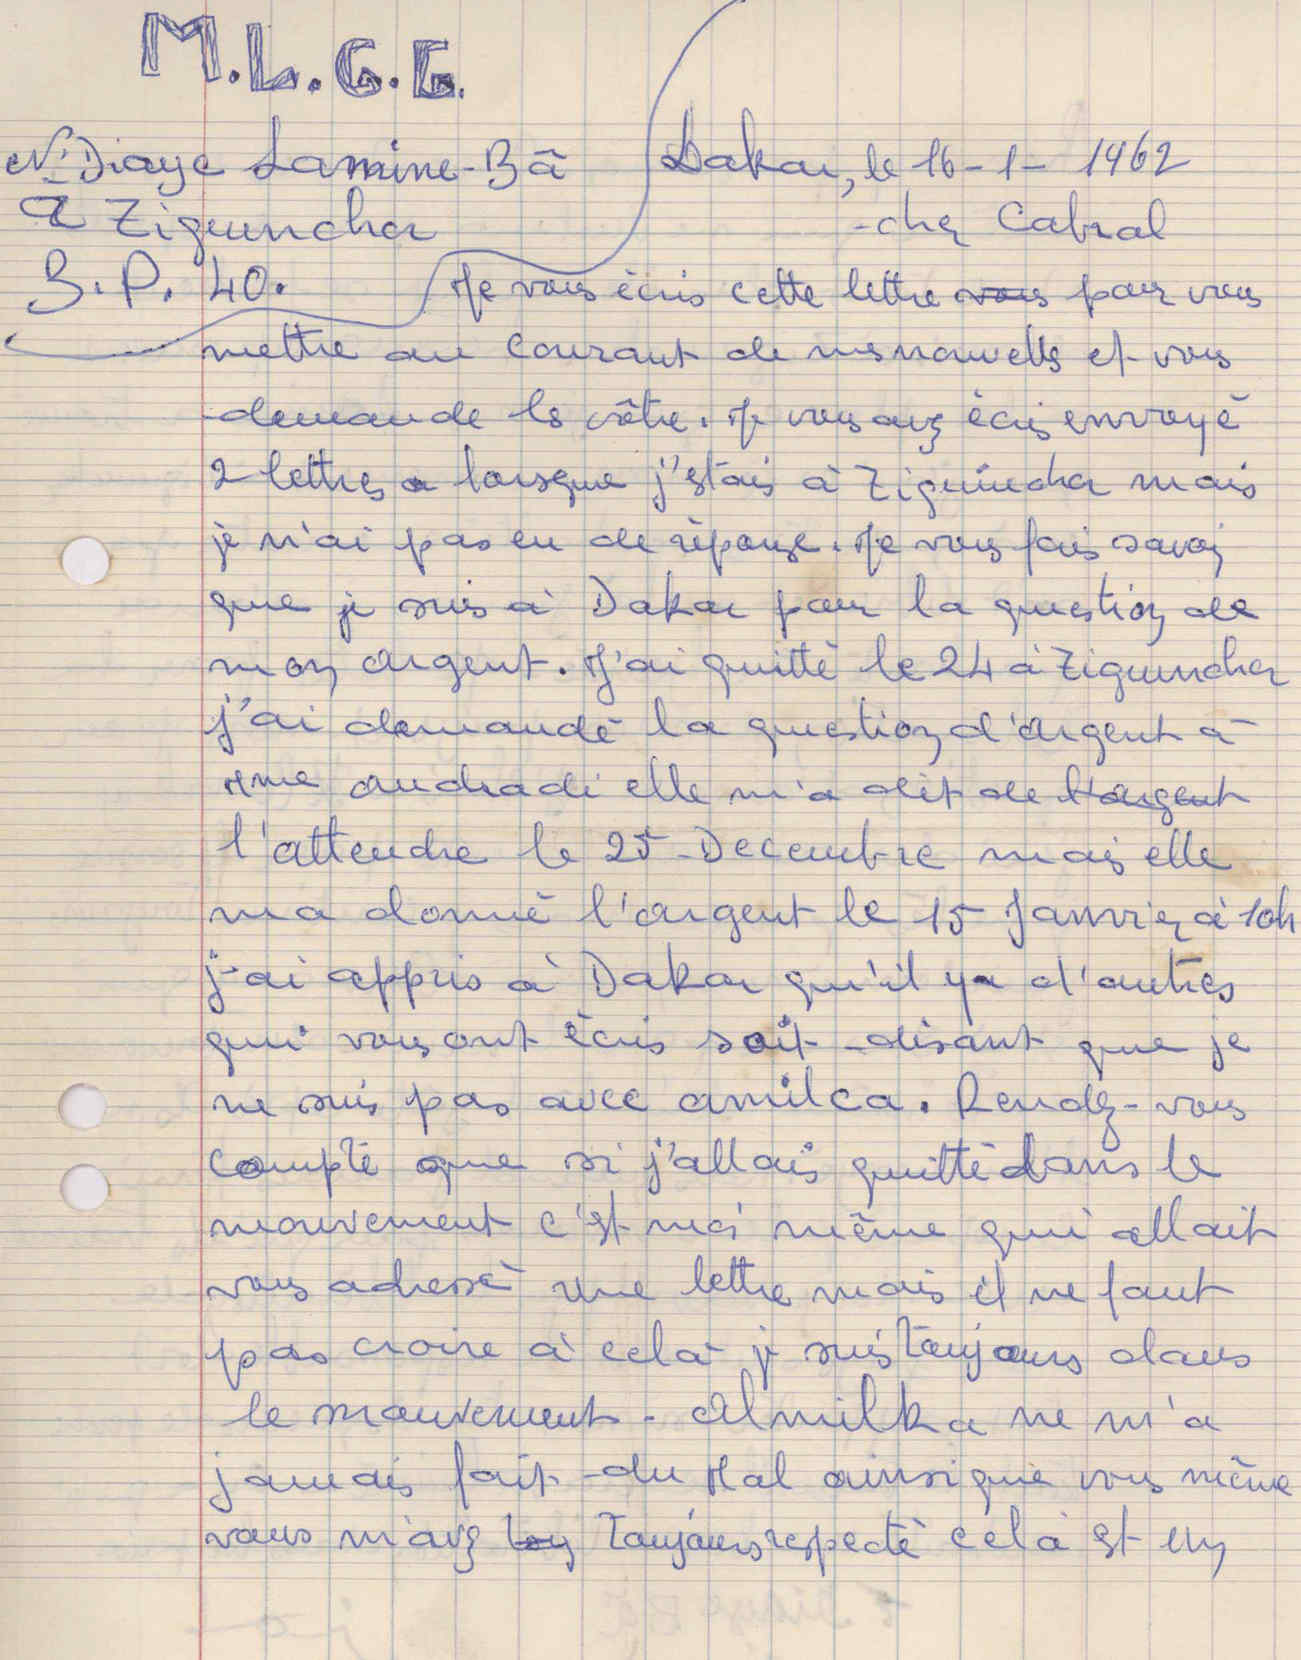 M.L.G.G.
N'Diaye Lamine-Bâ
à Ziguinchor
B.P. 40.
Dakar, le 16-1-1962
chez Cabral
Je vous écris cette lettre vous pour vous
mettre au courant de mes nouvelles et vous
demande les vôtre. Je vous avez écris envoyé
2 lettres a lorsque j'étais à Ziguinchor mais
je n'ai pas eu de réponse. Je vous fais savoir
que je suis à Dakar pour la question de
mon argent. J'ai quitté le 24 à Ziguinchor
j'ai demandé la question d'argent à
Mme Andradi elle m'a dit de l'argent
l'attendre le 25 Decembre mais elle
ma donné l'argent le 15 Janvier à 10h
j'ai appris à Dakar qu'il ya d'autres
qui vous ont écris soit-disant que je
ne suis pas avec amilca. Rendez-vous
compte que si j'allais quitté dans le
mouvement c'est moi même qui allait
vous adressé une lettre mais il ne faut
pas croire à celà je suis toujours dans
le mouvement. Almilka ne m'a
jamais fait du Mal ainsi que vous même
vous m'avez toujours respecté celà est un